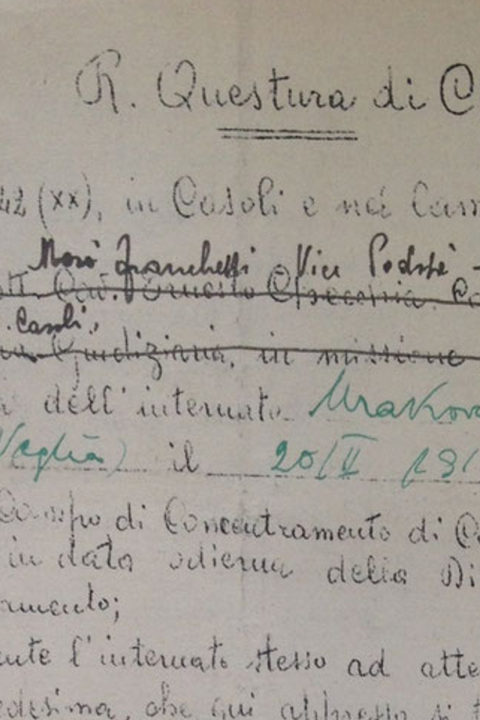 R. Questura di C
42 (XX), in Casoli e nei Cam
Franchetti Vice Podstà -
Cav. Ernesto
Casoli,
Giudiziaria, in missione
dell'internato Mrakova
Veglia) il 20/II 18
Campo di Concentramento di C
in data odierna della Di
amento;
ente l'internato stesso ad atte
edesima, che qui appresso si t